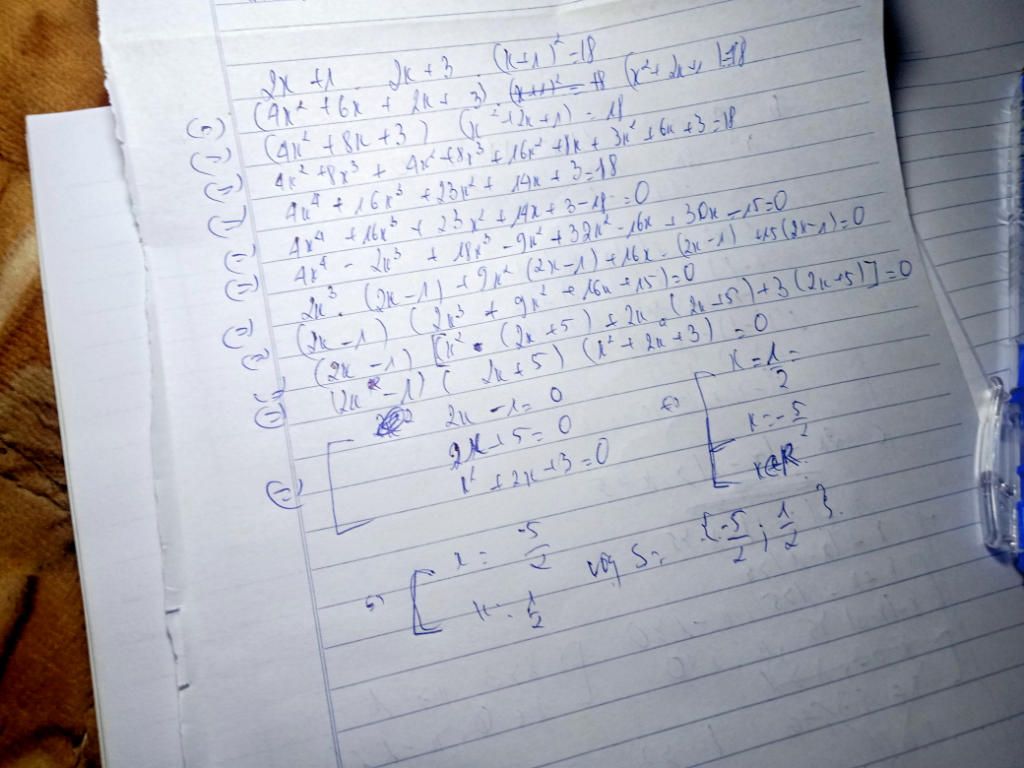 2x + 1 . 2x + 3 . (x+1)² = 18
(=) (4x² + 6x + 2x + 3) . (x² + 2x + 1) = 18
(=) (4x² + 8x + 3) (x² + 2x + 1) = 18
(=) 4x² + 8x³ + 4x² + 8x³ + 16x² + 8x + 3x² + 6x + 3 = 18
(=) 4x⁴ + 16x³ + 23x² + 14x + 3 = 18
(=) 4x⁴ + 16x³ + 23x² + 14x + 3 - 18 = 0
(=) 4x⁴ - 2x³ + 18x³ - 9x² + 32x² - 16x + 30x - 15 = 0
(=) 2x³ . (2x - 1) + 9x² (2x - 1) + 16x . (2x - 1) + 15 (2x - 1) = 0
(=) (2x - 1) (2x³ + 9x² + 16x + 15) = 0
(=) (2x - 1) [x² . (2x + 5) + 2x . (2x + 5) + 3 (2x + 5)] = 0
(=) (2x - 1) (2x + 5) (x² + 2x + 3) = 0
(=) [ 2x - 1 = 0 (=) [ x = 1/2
2x + 5 = 0 x = -5/2
x² + 2x + 3 = 0 x∉R
(=) [ x = -5/2 vậy S = {-5/2 ; 1/2}.
x = 1/2